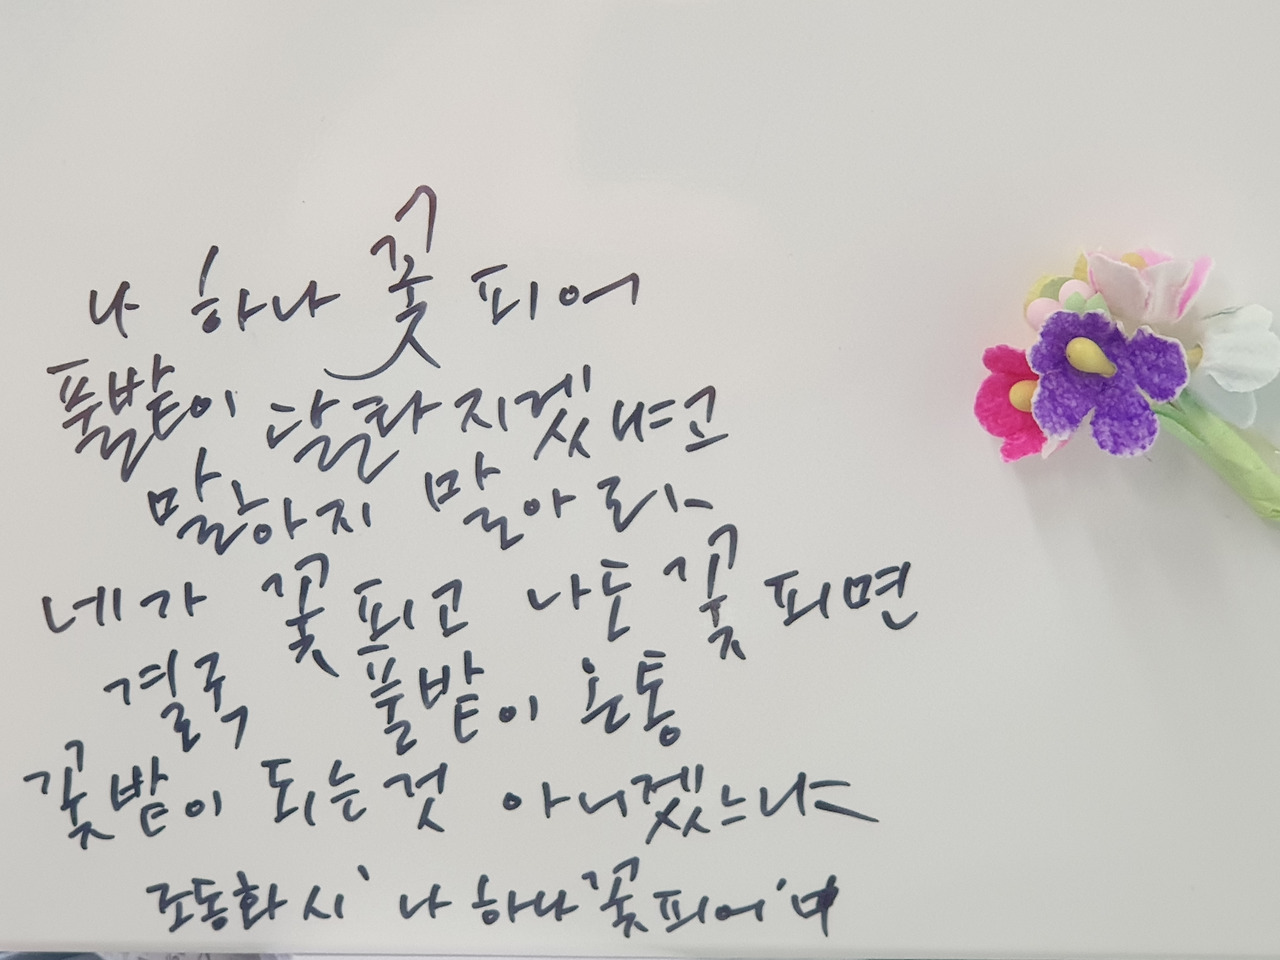 나 하나 꽃 피어
풀밭이 달라지겠냐고
말하지 말아라
네가 꽃 피고 나도 꽃 피면
결국 풀밭이 온통
꽃밭이 되는것 아니겠느냐
조동화 시 '나 하나 꽃 피어'中